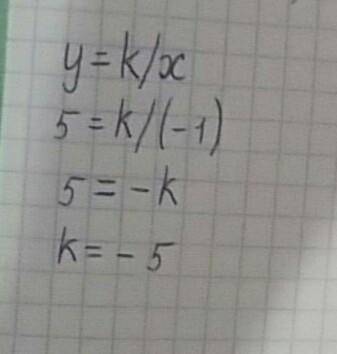 y=k/x
5=k/(-1)
5=-k
k=-5